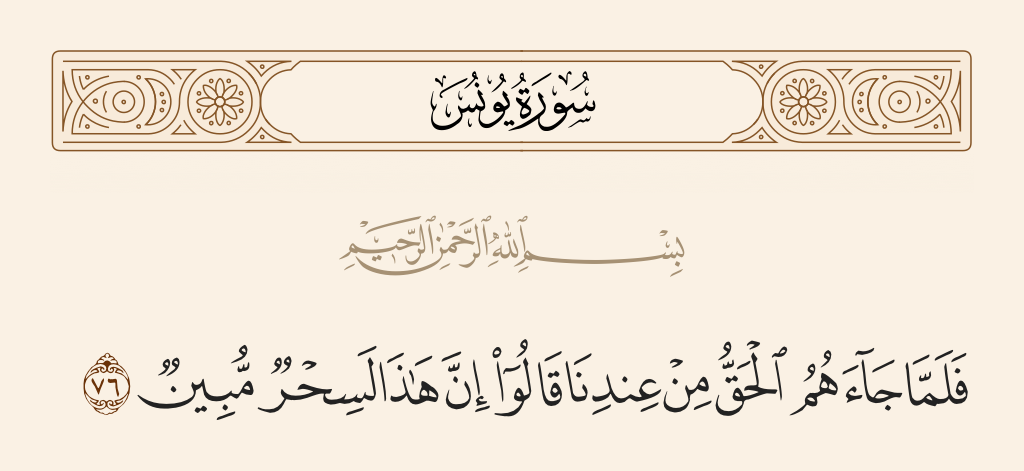 سُورَةُ يُونُسَ
بِسْمِ ٱللَّهِ ٱلرَّحْمَٰنِ ٱلرَّحِيمِ
فَلَمَّا جَآءَهُمُ ٱلْحَقُّ مِنْ عِندِنَا قَالُوٓا۟ إِنَّ هَٰذَا لَسِحْرٌ مُّبِينٌ ٧٦